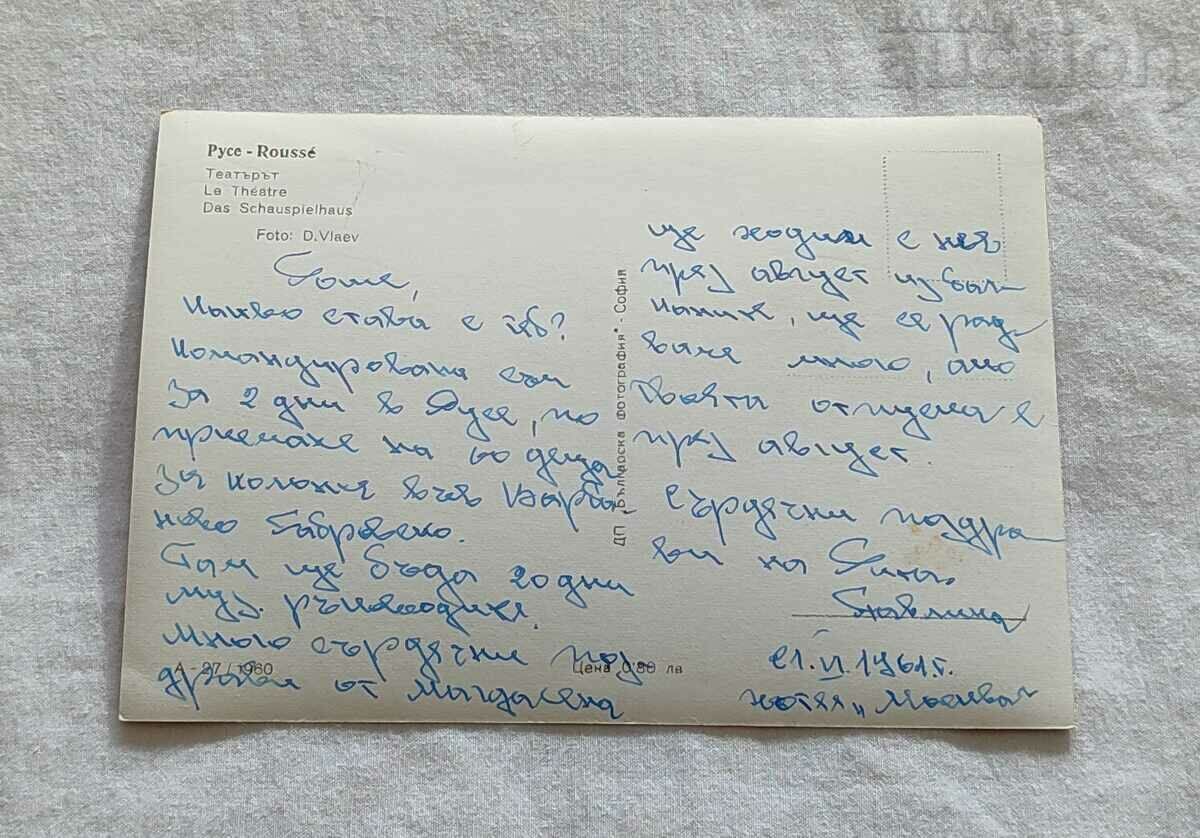 Русе - Roussé
Театърът
Le Théatre
Das Schauspielhaus
Foto: D. Vlaev
какво става с теб?
Командирована съм
за 2 дни в Русе, по
приемане на 60 деца
за колония във Върба-
ново Габровско.
Там ще бъда 20 дни
муз. ръководител.
Много сърдечни поз
драви от Магдалена
ще ходим с нея
през август из Бал-
каните, ще се рад-
ваме много, ако
твоята отпуска е
през август.
Сърдечни поздра
ви на
21.VI.1961г.
хотел „Москва"
ДП „Българска фотография" - София
А-27/1960
Цена 0·80 лв